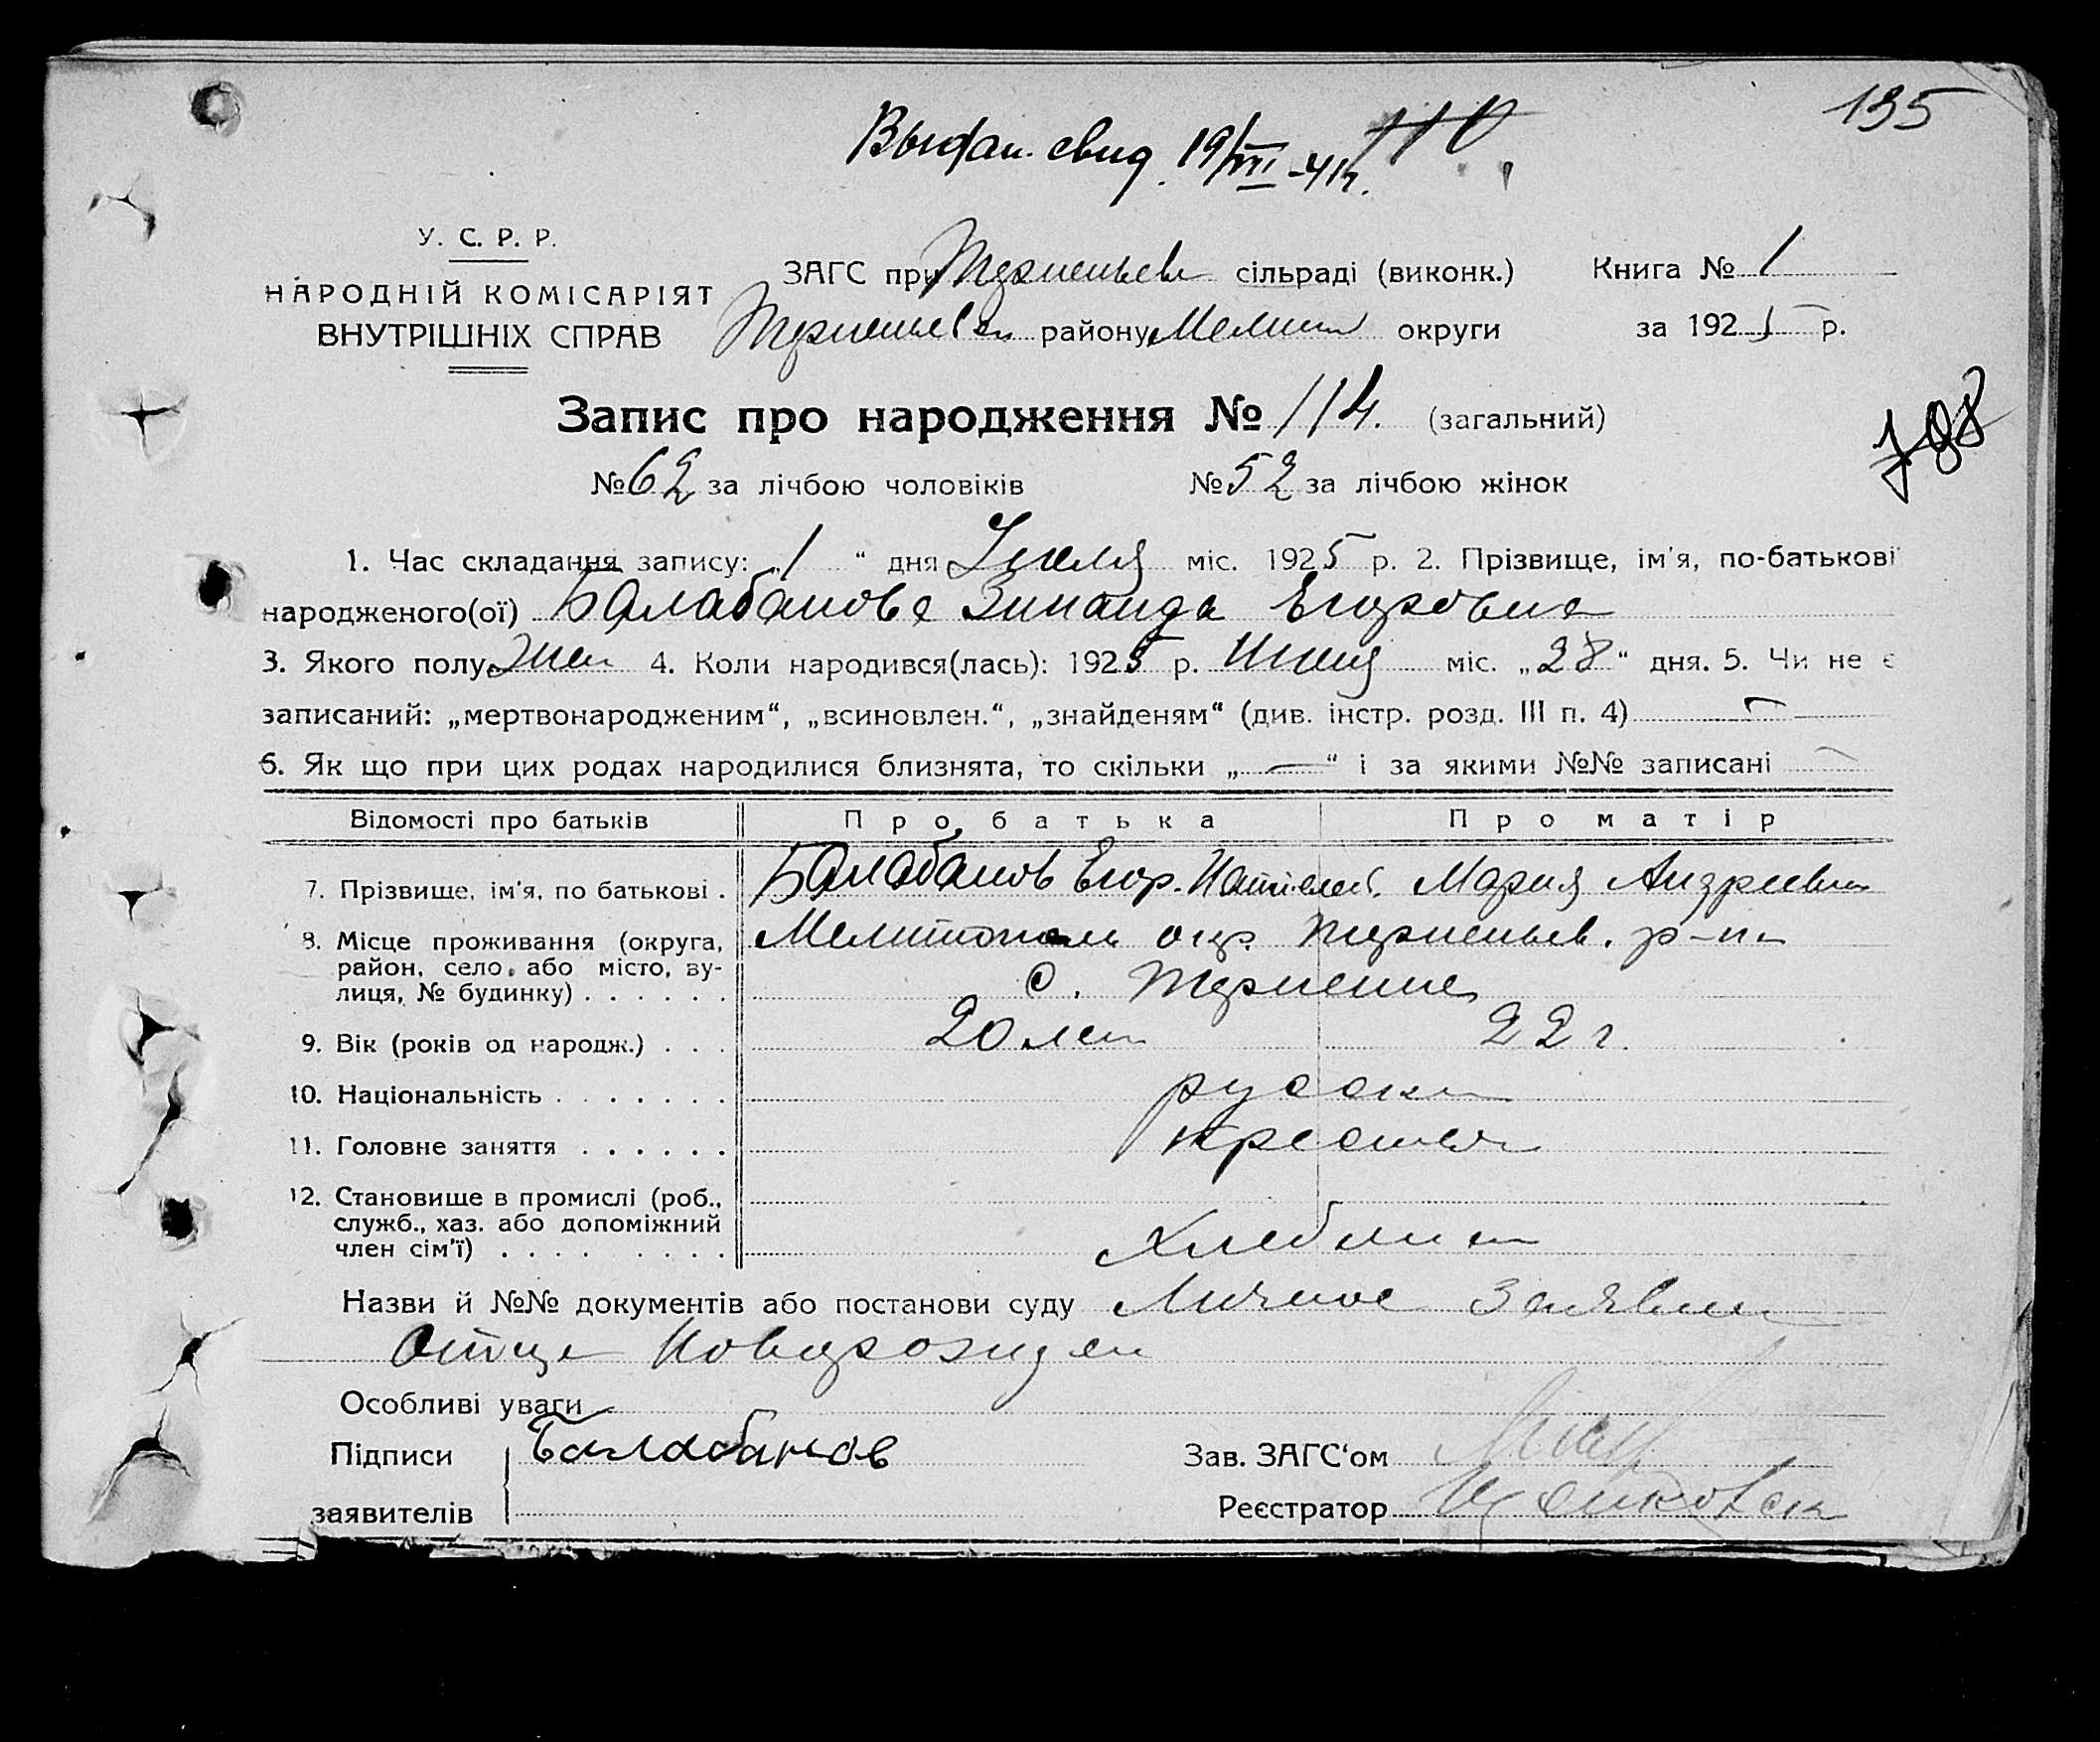 135
Выдан. свид. 19/VII-41г. 110
У. С. Р. Р.
НАРОДНІЙ КОМІСАРІЯТ
ВНУТРІШНІХ СПРАВ
ЗАГС при Терпеньев сільраді (виконк.) Книга № 1
Терпеньевск району Мелит округи за 1925 р.
Запис про народження № 114. (загальний)
№ 62 за лічбою чоловіків № 52 за лічбою жінок
1. Час складання запису: „1“ дня Июля міс. 1925 р. 2. Прізвище, ім'я, по-батькові
народженого(ої) Балабанова Зинаида Егоровна
3. Якого полу жен 4. Коли народився(лась): 1925 р. Июня міс. „28“ дня. 5. Чи не є
записаний: „мертвонародженим“, „всиновлен.“, „знайденям“ (див. інстр. розд. III п. 4) —
6. Як що при цих родах народилися близнята, то скільки „—“ і за якими №№ записані —
Відомості про батьків Про батька Про матір
7. Прізвище, ім'я, по батькові . Балабанов Егор. Мария Андреевна
8. Місце проживання (округа, Мелитополь окр. Терпеньев. р-на
район, село, або місто, ву-
лиця, № будинку) . . . . . . с. Терпение
9. Вік (років од народж.) . . . 20 лет 22 г.
10. Національність . . . . . . . русск
11. Головне заняття . . . . . . крестьян
12. Становище в промислі (роб.,
служб., хаз. або допоміжний
член сім'ї) . . . . . . . . Хлебопаш
Назви й №№ документів або постанови суду Личное Заявлен
Отца Новорожден
Особливі уваги
Підписи Балабанов Зав. ЗАГС'ом
заявителів Реєстратор